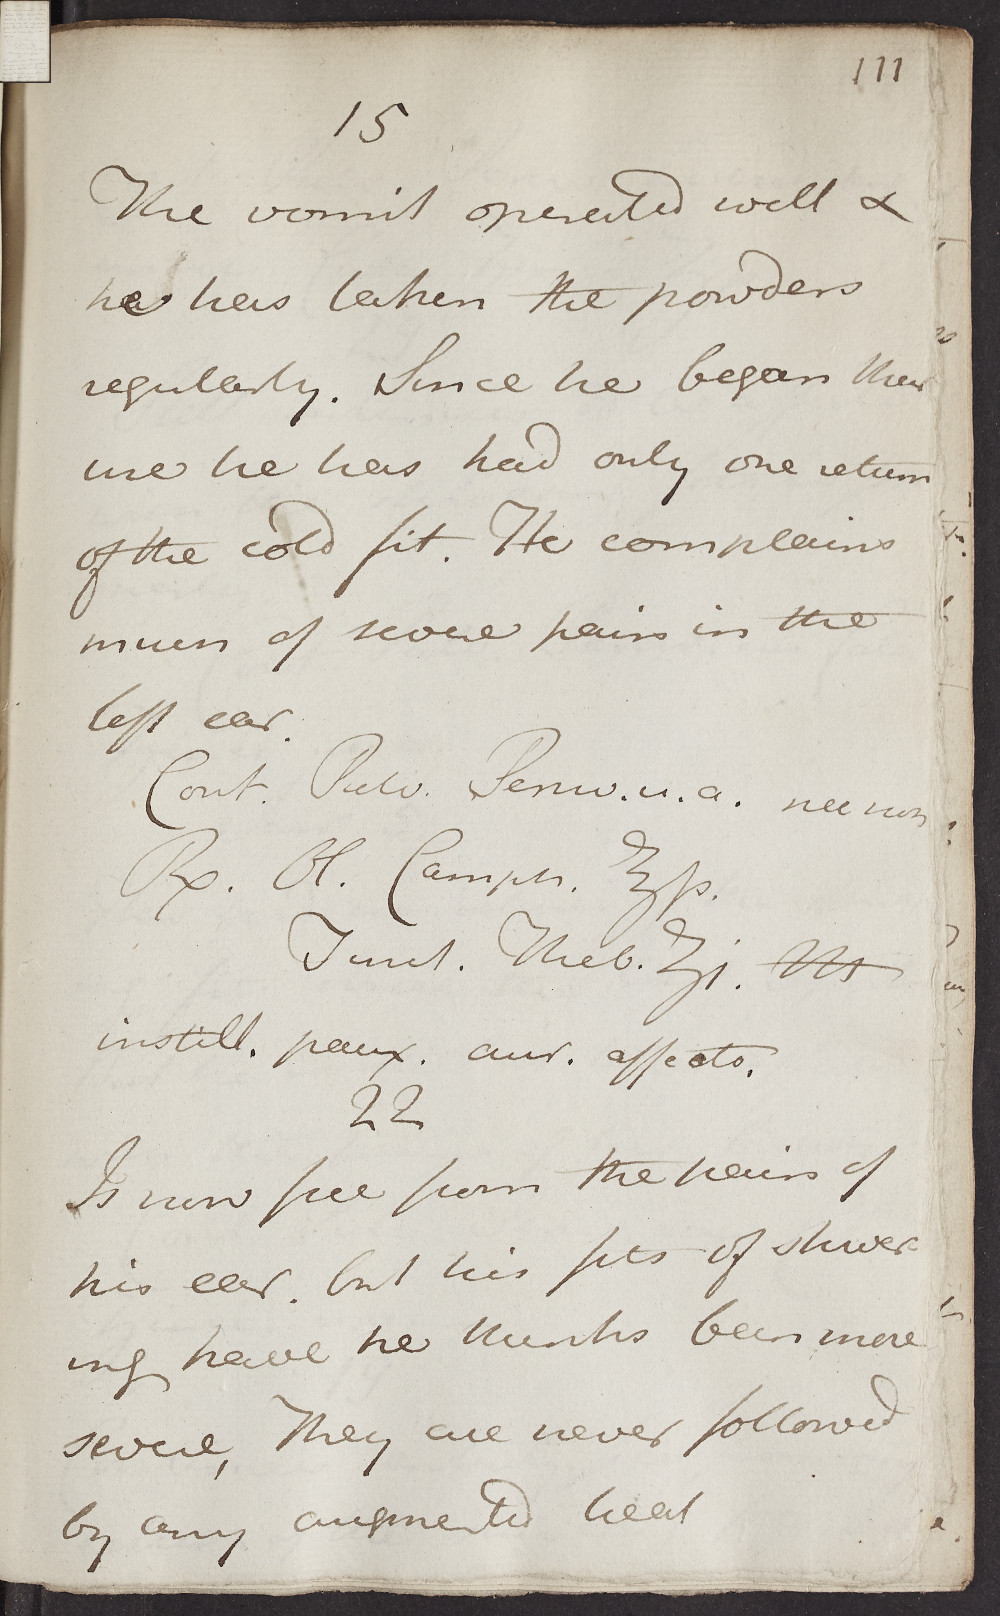 111
15
The vomit operated well &
he has taken the powders
regularly. Since he began their
use he has had only one return
of the cold fit. He complains
much of severe pain in the
left ear.
Cont. Pulv. Peruv. u. a. nec non
Rx. Ol. Camph. ʒſs.
Tinct. Theb. ʒj. M
instill. paux. aur. affecto.
22
Is now free from the pain of
his ear. but his fits of shiver
ing have he thinks been more
severe, They are never followed
by any augmented heat